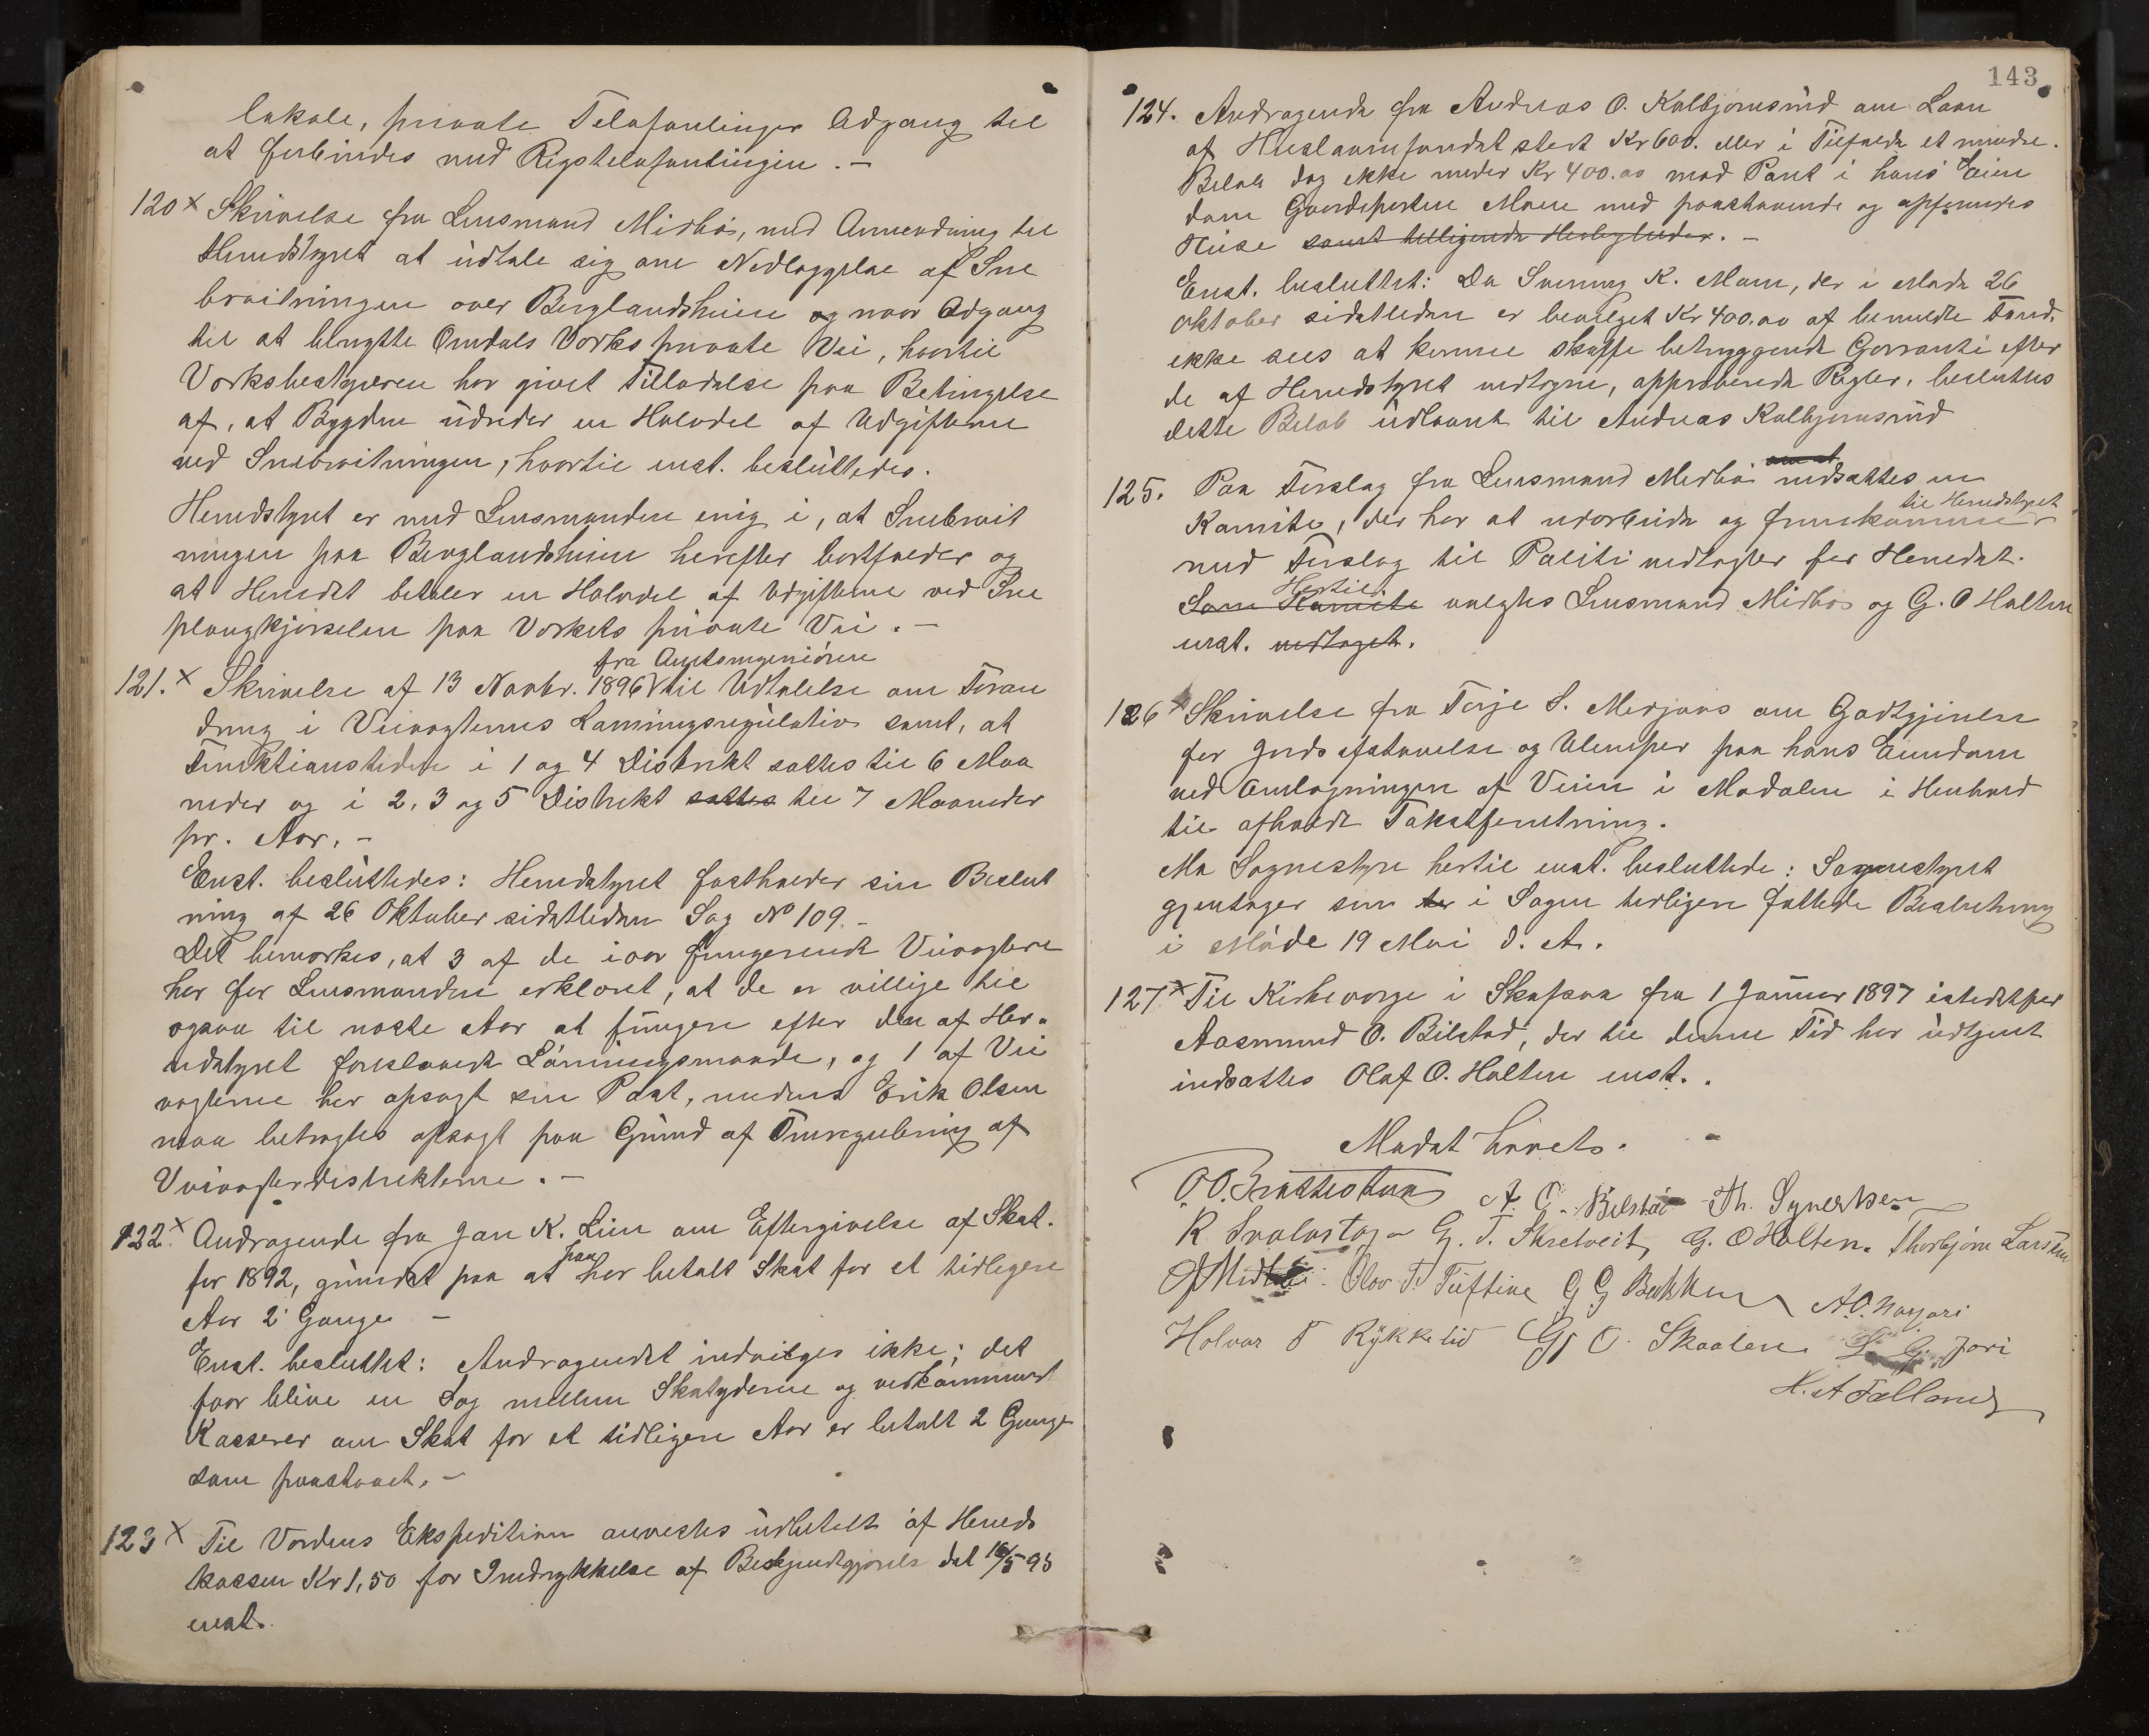 lokale, private Telefonlinjer Adgang til
at forbindes med Rigstelefonlinjen. -
120 x Skrivelse fra Lensmand Midbø, med Anmodning til
Herredstyret at udtale sig om Nedlæggelse af Sne
brøitningen over Berglandsheien og naar Adgang
til at benytte Omdals Værks private Vei, hvortil
Værksbestyreren har givet Tilladelse paa Betingelse
af, at Bygden udreder en Halvdel af Udgifterne
ved Snebrøitningen, hvortil enst. besluttedes.
Herredstyret er med Lensmanden enig i, at Snebrøit
ningen paa Berglandsheien herefter bortfalder og
at Herredet betaler en Halvdel af Udgifterne ved Sne
plougkjørselen paa Værkets private Vei. -
fra Amtsingeniøren
121. x Skrivelse af 13 Novbr. 1896 til Udtalelse om Foran
dring i Veivogternes Lønningsregulativ samt, at
Funktionstiden i 1 og 4 Distrikt sættes til 6 Maa
neder og i 2, 3 og 5 Distrikt sættes til 7 Maaneder
pr. Aar. -
Enst. besluttedes: Herredstyret fastholder sin Beslut
ning af 26 Oktober sidstleden Sag No 109. -
Det bemærkes, at 3 af de iaar fungerende Veivogtere
har for Lensmanden erklæret, at de er villige til
ogsaa til næste Aar at fungere efter den af Her-
redstyret foreslaaede Lønningsmaade, og 1 af Vei
vogterne har opsagt sin Post, medens Erik Olsen
maa betragtes opsagt paa Grund af Omregulering af
Veivogterdistrikterne. -
122. x Andragende fra Jan K. Lien om Eftergivelse af Skat
for 1892, grundet paa at han har betalt Skat for et tidligere
Aar 2 Gange -
Enst. besluttet: Andragendet indvilges ikke; det
faar blive en Sag mellem Skatyderne og vedkommend
Kasserer om Skat for et tidligere Aar er betalt 2 Gange
som paastaaet. -
123 x Til Vardens Ekspedition anvistes udbetalt af Herreds
kassen Kr 1,50 for Indrykkelse af Bekjendtgjørels dat 16/5 95
enst.
143
124. Andragende fra Andreas O. Kalbjørnsrud om Laan
af Huslaansfondet stort Kr 600. eller i Tilfælde et mindre
Beløb dog ikke under Kr 400.00 mod Pant i hans Eien
dom Gaardeparten Moen med paastaaende og opførendes
Huse samt tilliggende Herligheder. -
Enst. besluttet: Da Svenung K. Moen, der i Møde 26
Oktober sidstleden er bevilget Kr 400.00 af bemeldte Fond,
ikke sees at kunne skaffe betryggende Garranti efter
de af Herredstyret vedtagne, approberede Regler, besluttes
dette Beløb udlaant til Andreas Kalbjørnsrud
125. Paa Forslag fra Lensmand Midbø nedsattes en
Komite, der har at udarbeide og fremkomme til Herredstyret
med Forslag til Politi vedtægter for Herredet.
Hertil
Som Komite valgtes Lensmand Midbø og G. O Holten
enst. vedtaget.
126 x Skrivelse fra Terje S. Medjaas om Godtgjørelse
for Jordsafstaaelse og Ulemper paa hans Eiendom
ved Omlægningen af Veien i Modalen i Henhold
til afholdt Takstforretning.
Mo Sognestyre hertil enst. besluttede: Sognestyret
gjentager sin i Sagen tidligere fattede Beslutning
i Møde 19 Mai d. A.
127. x Til Kirkeværge i Skafsaa fra 1 Januar 1897 istedetfor
Aasmund O. Bilstad, der til denne Tid har udtjent
indsattes Olaf O. Holten enst.
Mødet hævets.
A. O. Bilstad Th. Synersken
R Svalastog G. T. Skretveit G. O Holten. Thorbjørn Larsen
O Midbø Olav T. Tuftine G G Bakken A. O. Naxjori
Holvar T Rykkelid G O. Skaalen S. G. Jori
H. A Felland